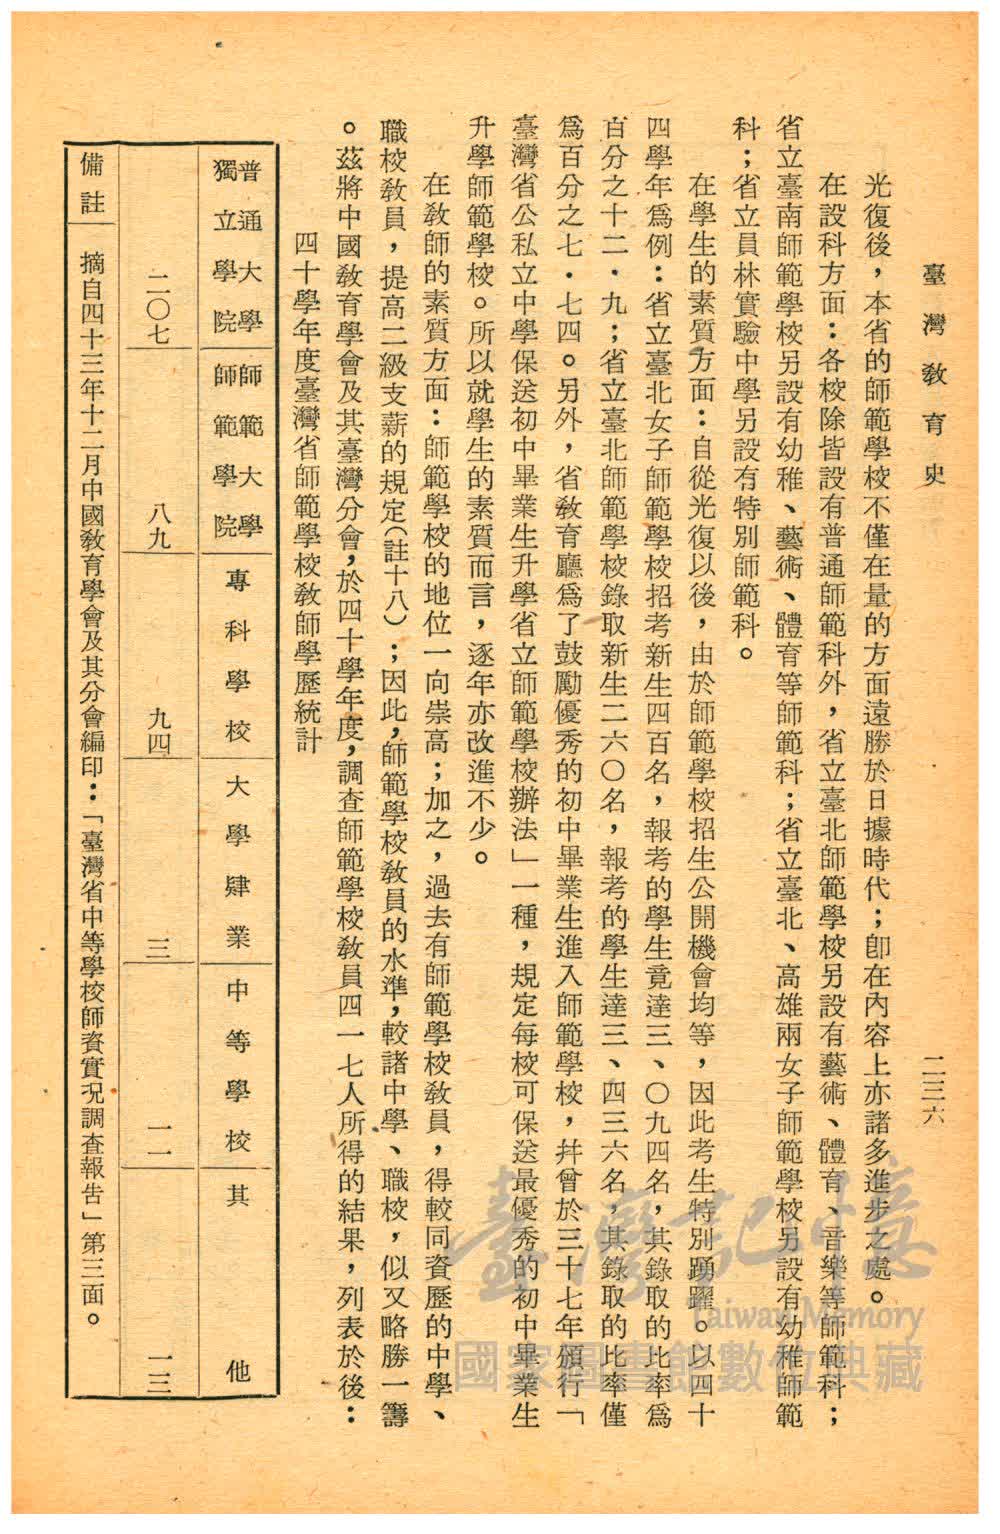 臺灣教育史
二三六
光復後，本省的師範學校不僅在量的方面遠勝於日據時代；卽在內容上亦諸多進步之處。
在設科方面：各校除皆設有普通師範科外，省立臺北師範學校另設有藝術、體育、音樂等師範科；
省立臺南師範學校另設有幼稚、藝術、體育等師範科；省立臺北、高雄兩女子師範學校另設有幼稚師範
科；省立員林實驗中學另設有特別師範科。
在學生的素質方面：自從光復以後，由於師範學校招生公開機會均等，因此考生特別踴躍。以四十
四學年爲例：省立臺北女子師範學校招考新生四百名，報考的學生竟達三、〇九四名，其錄取的比率爲
百分之十二．九；省立臺北師範學校錄取新生二六〇名，報考的學生達三、四三六名，其錄取的比率僅
爲百分之七．七四。另外，省敎育廳爲了鼓勵優秀的初中畢業生進入師範學校，幷曾於三十七年頒行「
臺灣省公私立中學保送初中畢業生升學省立師範學校辦法」一種，規定每校可保送最優秀的初中畢業生
升學師範學校。所以就學生的素質而言，逐年亦改進不少。
在敎師的素質方面：師範學校的地位一向崇高；加之，過去有師範學校敎員，得較同資歷的中學、
職校敎員，提高二級支薪的規定（註十八）；因此，師範學校敎員的水準，較諸中學、職校，似又略勝一籌
。茲將中國敎育學會及其臺灣分會，於四十學年度，調查師範學校敎員四一七人所得的結果，列表於後：
四十學年度臺灣省師範學校敎師學歷統計
普通大學
獨立學院
師範大學
師範學院
專科學校
大學肄業
中等學校
其他
二〇七
八九
九四
三
一一
一三
備註
摘自四十三年十二月中國敎育學會及其分會編印：「臺灣省中等學校師資實况調查報告」第三面。
臺灣記憶
Taiwan Memory
國家圖書館數位典藏